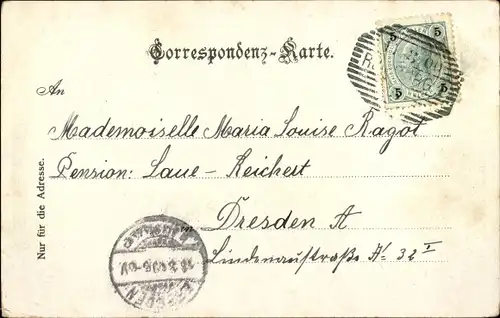 Correspondenz-Karte.
5 5
5 5
An
Mademoiselle Maria Louise Ragot
Pension: Laue-Reichert
Dresden A
Lindenaustraße № 32 I
Nur für die Adresse.